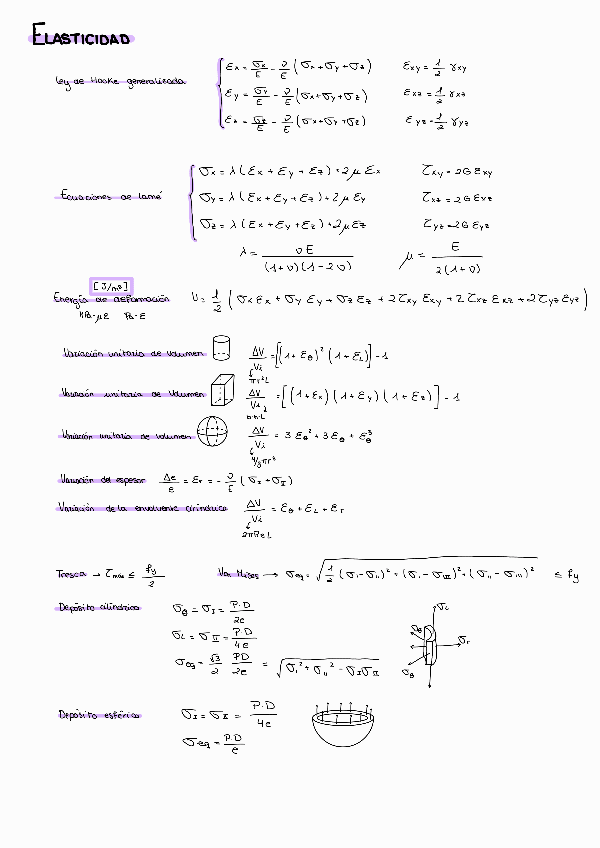 ELASTICIDAD
Ley de Hooke generalizada
εx = σx/E - ν/E (σx + σy + σz)    εxy = 1/2 γxy
εy = σy/E - ν/E (σx + σy + σz)    εxz = 1/2 γxz
εz = σz/E - ν/E (σx + σy + σz)    εyz = 1/2 γyz
Ecuaciones de Lamé
σx = λ(εx + εy + εz) + 2μ εx    τxy = 2G εxy
σy = λ(εx + εy + εz) + 2μ εy    τxz = 2G εxz
σz = λ(εx + εy + εz) + 2μ εz    τyz = 2G εyz
λ = νE / (1+ν)(1-2ν)    μ = E / 2(1+ν)
[J/m³]
Energía de deformación    U = 1/2 (σx εx + σy εy + σz εz + 2τxy εxy + 2τxz εxz + 2τyz εyz)
MPa-με    Pa-ε
Variación unitaria de volumen    ΔV/Vi = [(1+εθ)² (1+εL)] - 1
πr²L
Variación unitaria de volumen    ΔV/Vi = [(1+εx)(1+εy)(1+εz)] - 1
Variación unitaria de volumen    ΔV/Vi = 3εθ² + 3εθ + εθ³
4/3πr³
Variación del espesor    Δe/e = εr = -ν/E (σI + σII)
Variación de la envolvente cilíndrica    ΔV/Vi = εθ + εL + εr
2πReL
Tresca → τmáx ≤ fy/2    Von Mises → σeq = √(1/2 (σI-σII)² + (σI-σIII)² + (σII-σIII)²) ≤ fy
Depósito cilíndrico    σθ = σI = P·D/2e
σL = σII = P·D/4e
σeq = √3/2 PD/2e = √(σI² + σII² - σIσII)
σL
σθ
σr
σθ
Depósito esférico    σI = σII = P·D/4e
σeq = P·D/e